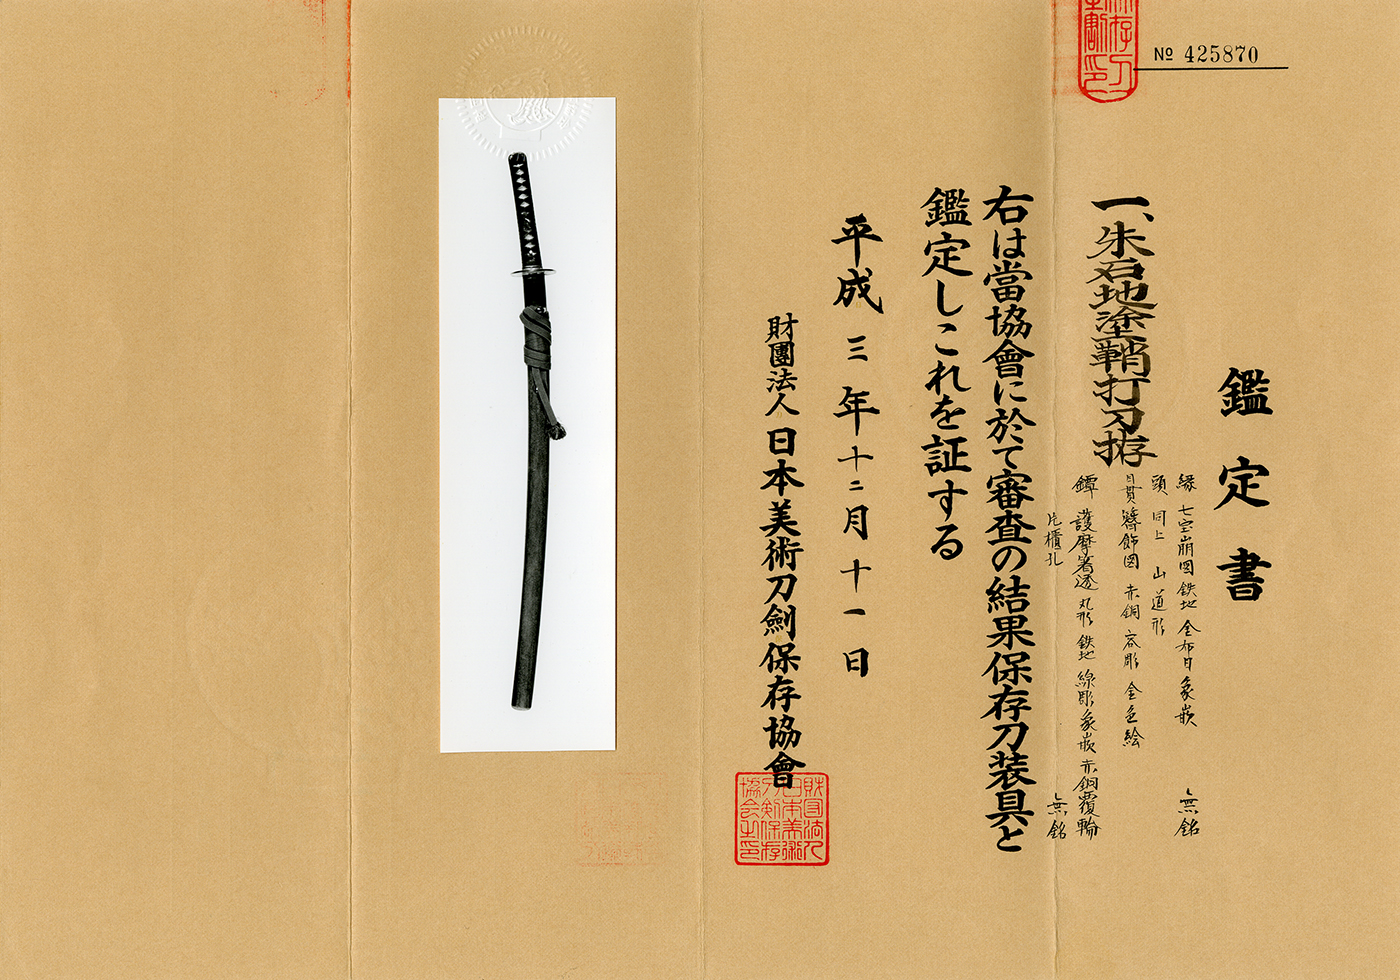 № 425870
鑑定書
一、朱石地塗鞘打刀拵
縁 七宝崩図 鉄地 金布目象嵌 無銘
頭 同上 山道形
目貫 簪飾図 赤銅 容彫 金色絵
鐔 護摩箸透 丸形 鉄地 線彫象嵌 赤銅覆輪
片櫃孔 無銘
右は當協會に於て審査の結果保存刀装具と
鑑定しこれを証する
平成三年十二月十一日
財團法人日本美術刀劍保存協會
財団法人日本美術刀剣保存協会之印